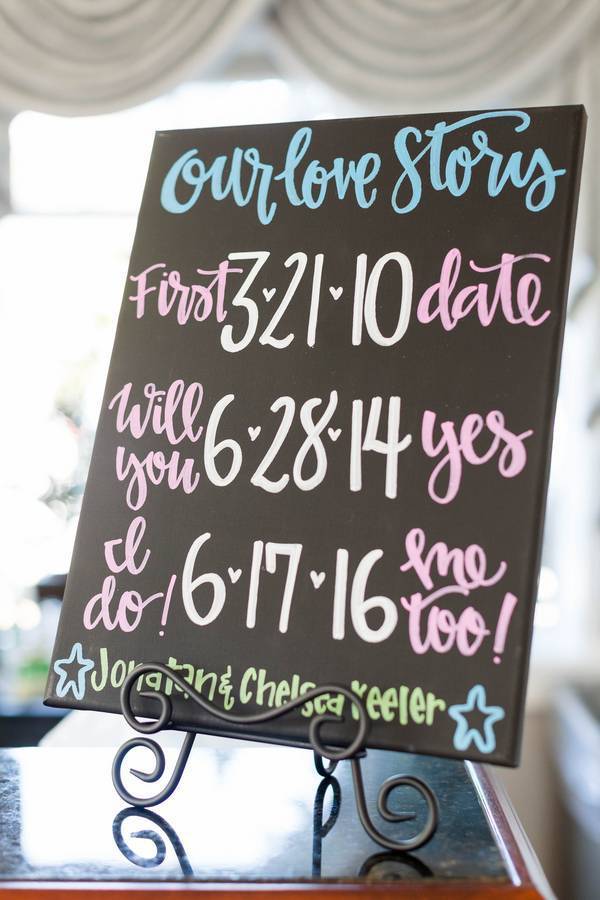 Our love Story
First 3·21·10 date
Will you 6·28·14 yes
I do! 6·17·16 me too!
Jonatan & Chelsea Keeler